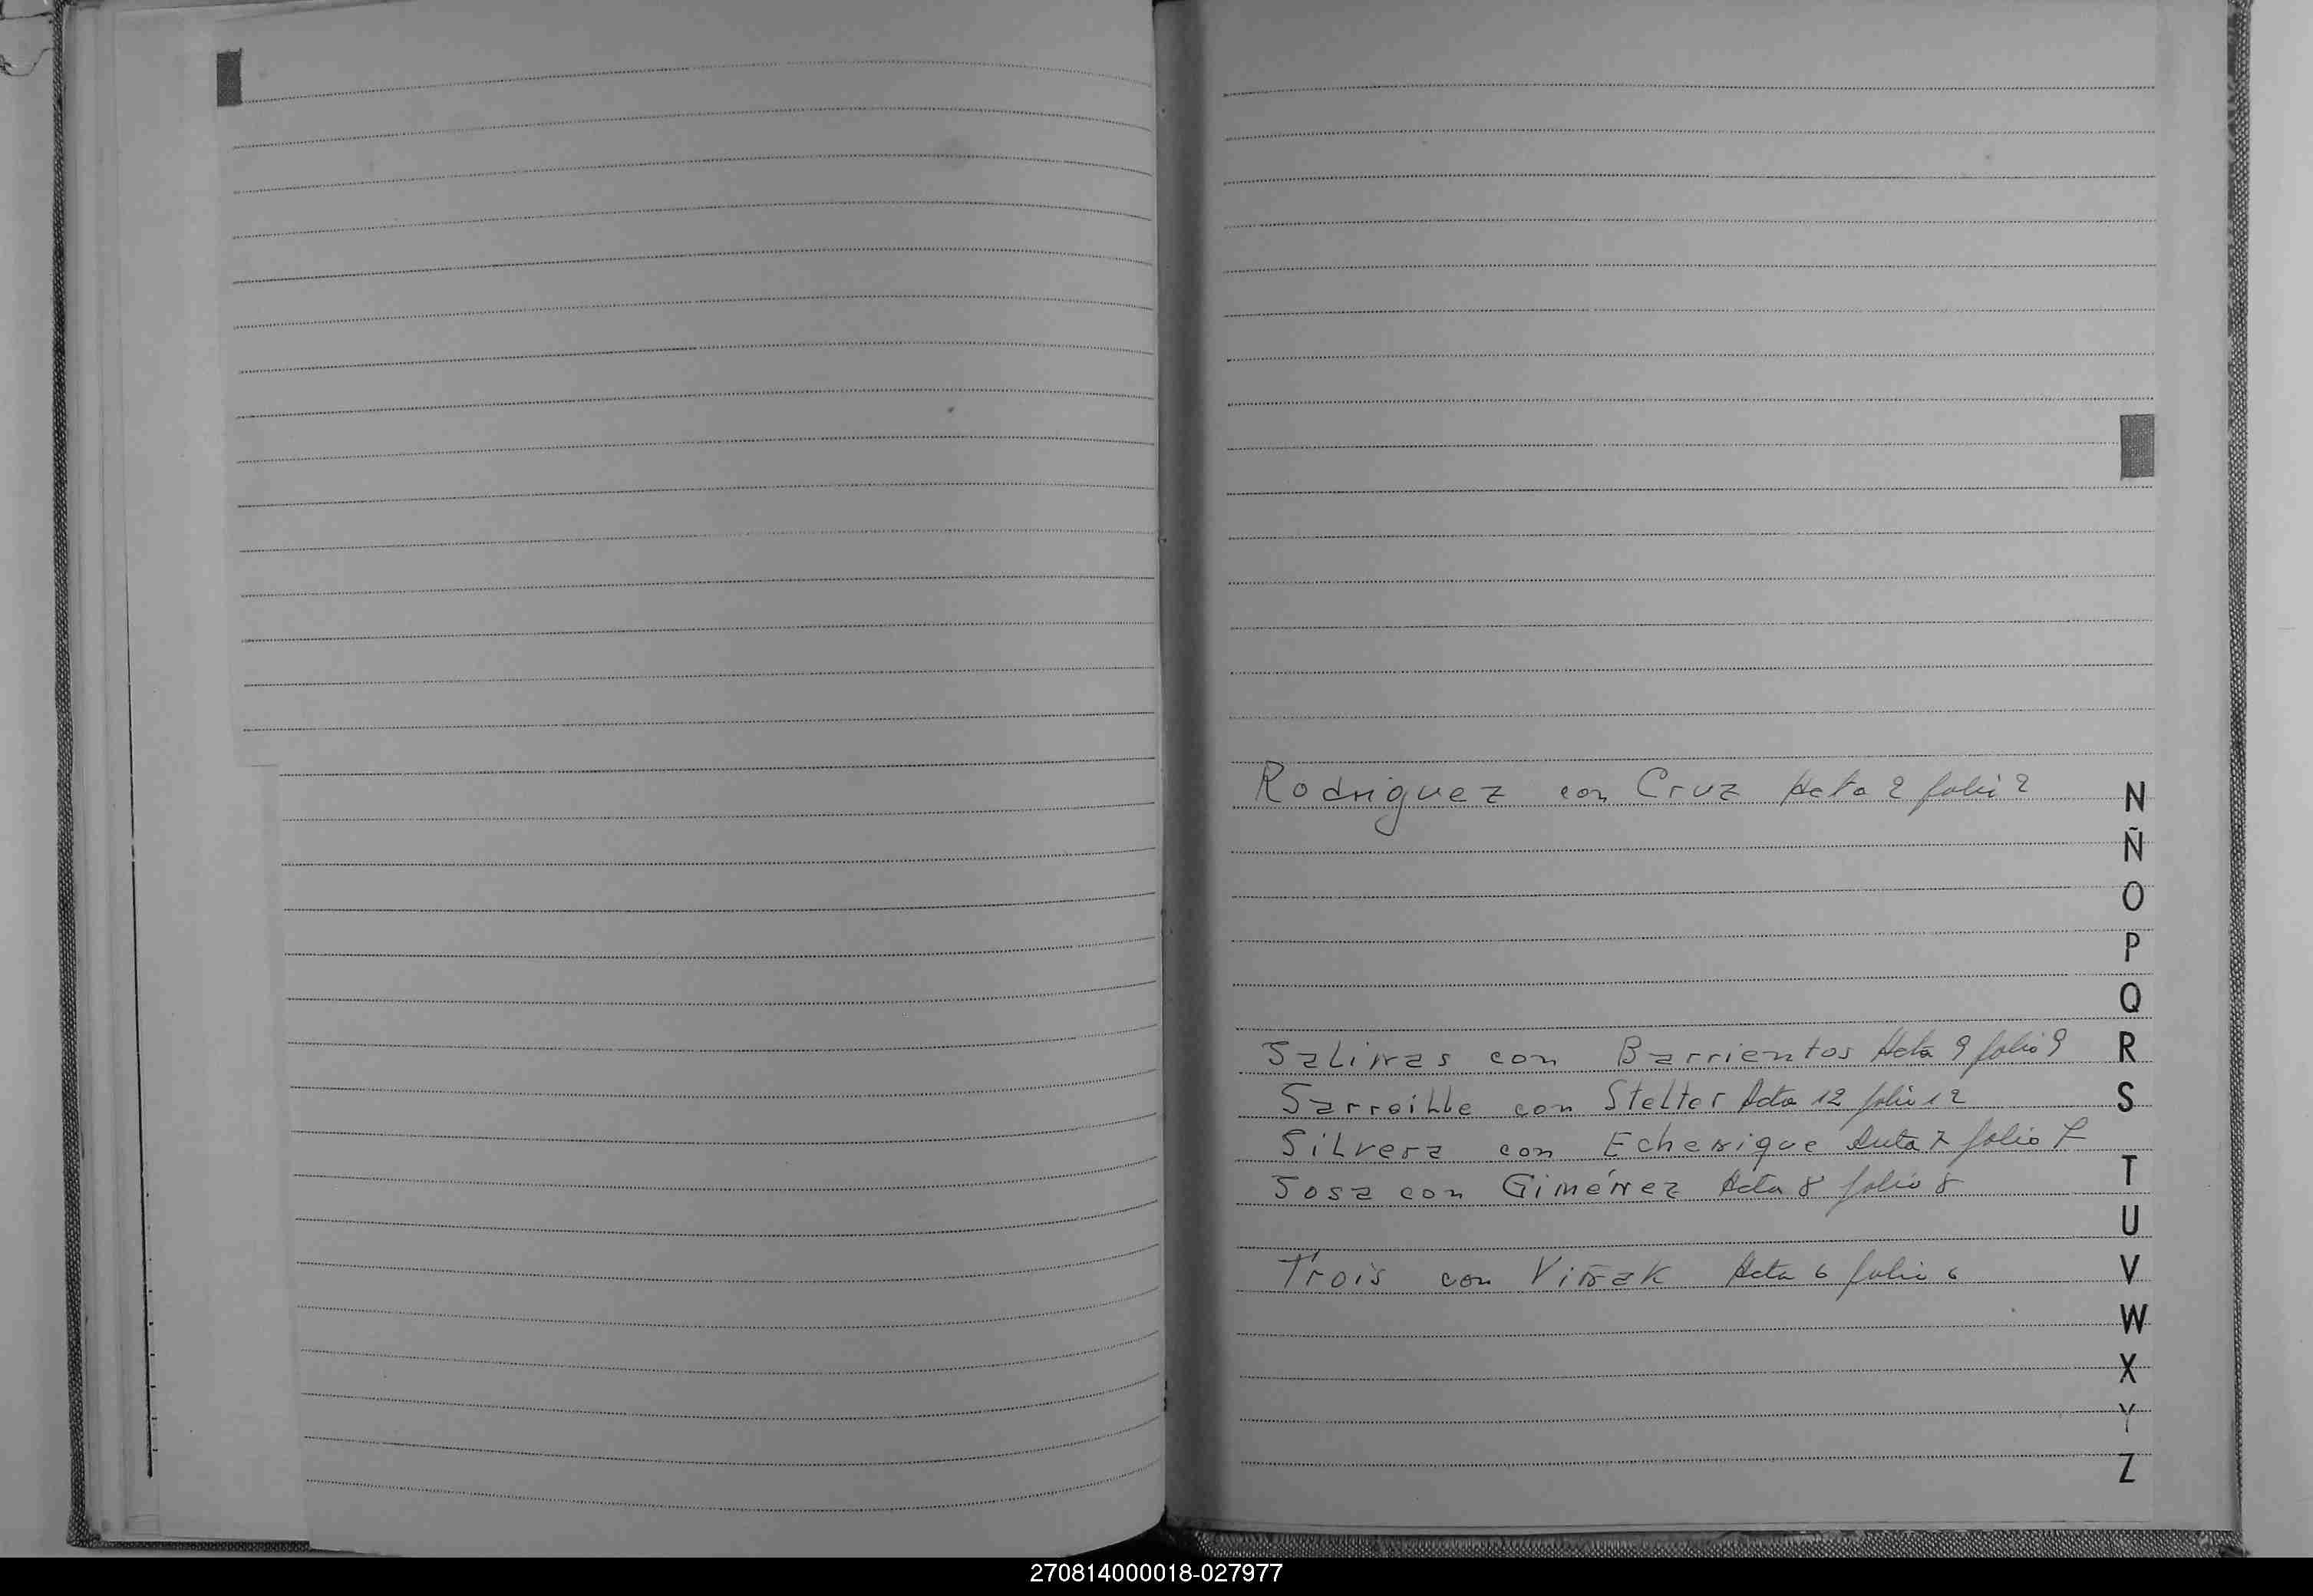 Rodriguez con Cruz Acta 2 folio 2
N
Ñ
O
P
Q
Salinas con Barrientos Acta 9 folio 9
R
Sarroible con Stelter Acta 12 folio 12
S
Silvera con Echenique Acta 7 folio 7
T
Sosa con Giménez Acta 8 folio 8
U
Trois con Viñak Acta 6 folio 6
V
W
X
Y
Z
270814000018-027977